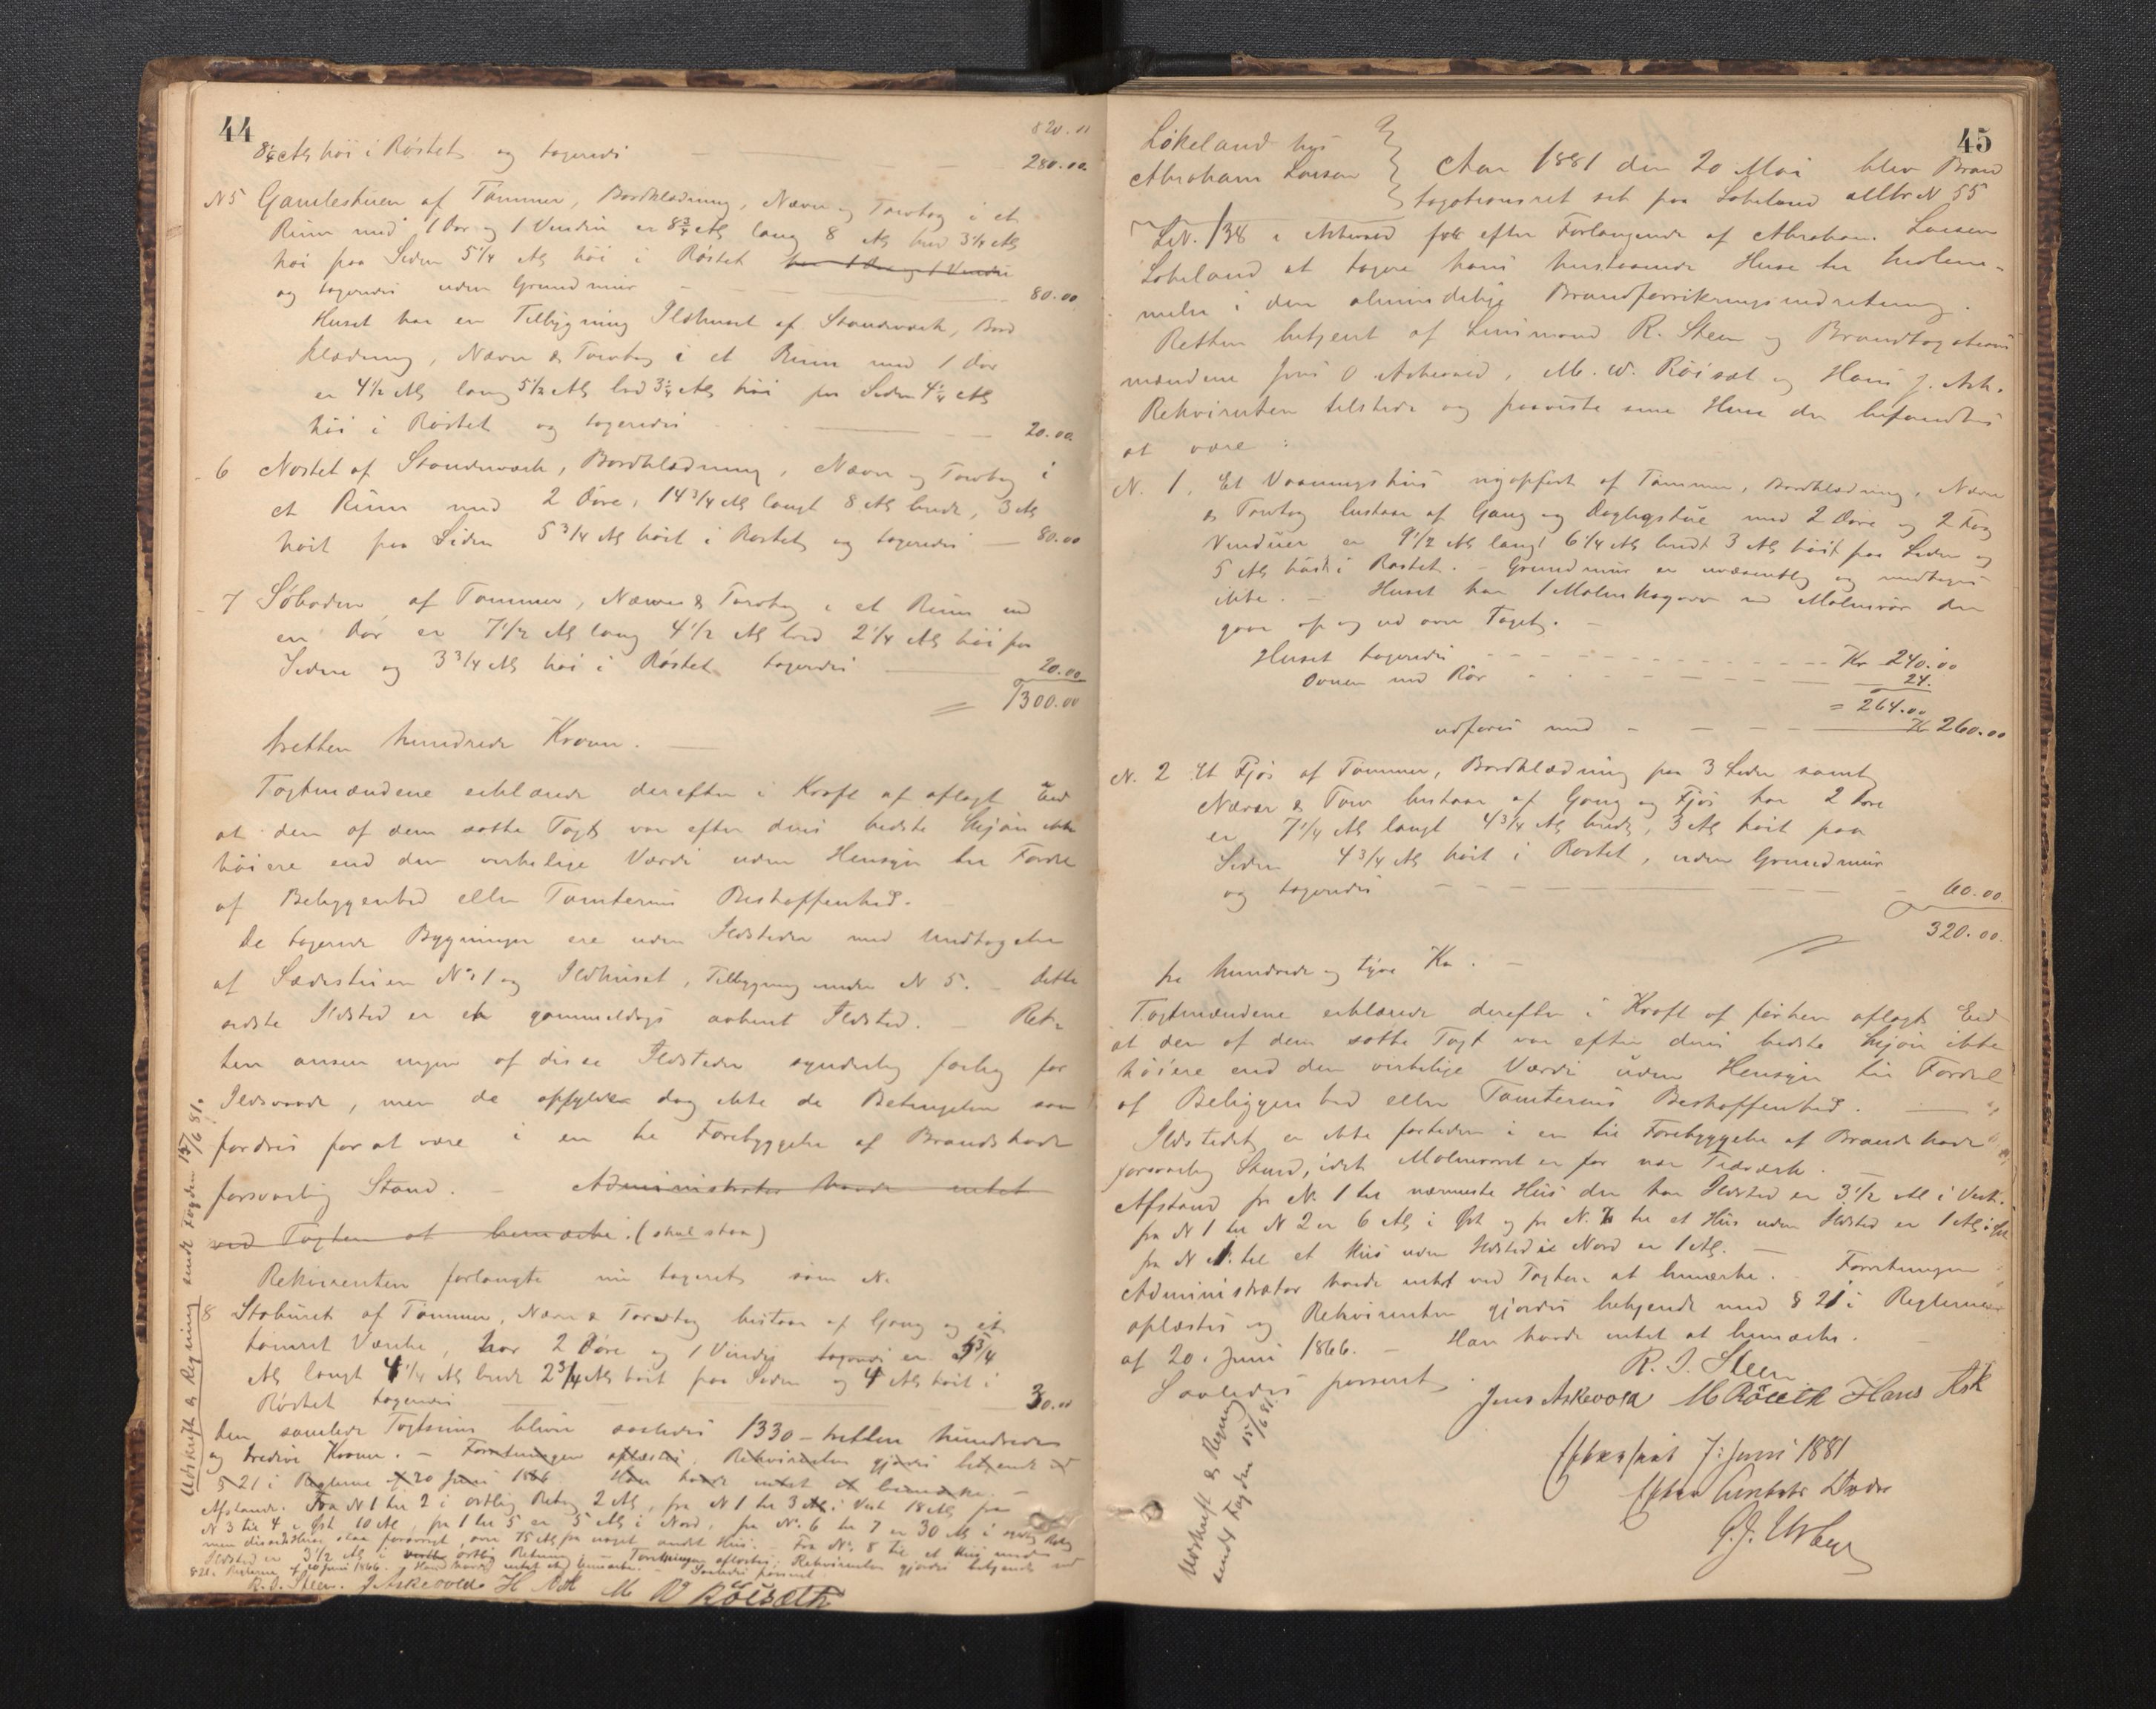 44
820.00
8¼ Al høi i Røstet og taxeredes — 280.00
N5 Gamlestuen af Tømmer, Bordklædning, Næver og Torvtag i et
Rum med 1 Dør og 1 Vindue er 8¾ Al lang 8 Al bred 3¼ Al
høi paa Siden 5¼ Al høi i Røstet har 1 Dør og 1 Vindue
og taxeredes uden Grundmur — 80.00
Huset har en Tilbygning Ildhuset af Standværk, Bord
klædning, Næver & Torvtag i et Rum med 1 Dør
er 4½ Al lang 5½ Al bred 3¼ Al høi paa Siden 4¼ Al
høi i Røstet og taxeredes — 20.00
6 Nøstet af Standværk, Bordklædning, Næver og Torvtag i
et Rum med 2 Døre, 14¾ Al langt 8 Al bredt, 3 Al
høit paa Siden 5¾ Al høit i Røstet og taxeredes — 80.00
7 Søboden af Tømmer, Næver & Torvtag i et Rum med
en Dør er 7½ Al lang 4½ Al bred 2¼ Al høi paa
Siden og 3¾ Al høi i Røstet taxeredes — 20.00
1300.00
tretten hundrede Kroner. —
Taxtmændene erklærede derefter i Kraft af aflagt Eed
at den af dem satte Taxt var efter deres bedste Skjøn ikke
høiere end den virkelige Værdi uden Hensyn til Fordel
af Beliggenhed eller Tomternes Beskaffenhed. —
De taxerede Bygninger ere uden Ildsteder med Undtagelse
af Sædestuen No 1 og Ildhuset, Tilbygning under N 5. – Dette
sidste Ildsted er et gammeldags aabent Ildsted. – Ret-
ten anser ingen af disse Ildsteder synderlig farlig for
Ildsvaade, men de opfylder dog ikke de Betingelser som
fordres for at være i en til Forebyggelse af Brandskade
forsvarlig Stand. – Administrator havde intet
ved Taxten at bemærke. (skal staa)
Rekvirenten forlangte nu taxeret som N.
8 Stabburet af Tømmer, Næver & Torvtag bestaar af Gang og et
tømret Værelse, har 2 Døre og 1 Vindue taxeredes er 5¾
Al langt 4¼ Al bredt 2¾ Al høit paa Siden og 4 Al høit i
Røstet taxeredes — 30.00
Den samlede Taxtsum bliver saaledes 1330 – tretten hundrede
og tredive Kroner. – Forretningen oplæstes, Rekvirenten gjordes bekjendt med
§ 21 i Reglerne af 20 Juni 1866. Han havde intet at bemærke. –
Afstande. Fra N 1 til 2 i østlig Retng 2 Al, fra N 1 til 3 Al i Vest 18 Al, fra
N 3 til 4 i Øst 10 Al, fra 1 til 5 er 5 Al i Nord, fra No. 6 til 7 er 30 Al i
men disse Huse staa forøvrigt over 75 Al fra noget andet Hus. – Fra No. 8 til et Hus uden
Ildsted er 3½ Al i østlig Retning. – Forretningen oplæstes. Rekvirenten gjordes bekjendt med
§ 21 Reglerne af 20 Juni 1866. Han havde intet at bemærke. – Saaledes passeret
R. I. Steen. J Askevold H Ask M W Röiseth
Udskrift og Regning sendt Fogden 15/6 81.
45
Løkeland hus
Abraham Larsen
Aar 1881 den 20 Mai blev Brand
taxationsret sat paa Løkeland Matr N 55
L.N. 138 i Askevold for efter Forlangende af Abraham Larsen
Løkeland at taxere hans herstaaende Huse til Indlem-
melse i den almindelige Brandforsikringsindretning.
Retten betjent af Lensmand R. Steen og Brandtaxations
mændene Jens O Askevold, M. W. Röiset og Hans J. Ask.
Rekvirenten tilstede og paaviste sine Huse der befandtes
at være :
N. 1. Et Vaaningshus nyopført af Tømmer, Bordklædning, Næver
& Torvtag bestaar af Gang og Dagligstue med 2 Døre og 2 Fag
Vinduer er 9½ Al langt 6¼ Al bredt 3 Al høit paa Siden og
5 Al høit i Røstet. – Grundmur er uvæsentlig og medtages
ikke. – Huset har 1 Malmkagovn med Malmrør der
gaar op og ud over Taget. –
Huset taxeredes — Kr 240.00
Ovnen med Rør — 24.
= 264.00
udføres med — Kr 260.00
N. 2 Et Fjøs af Tømmer, Bordklædning paa 3 Sider samt
Næver & Torv bestaar af Gang og Fjøs har 2 Døre
er 7¼ Al langt 4¾ Al bredt, 3 Al høit paa
Siden 4¾ Al høit i Røstet, uden Grundmur
og taxeredes — 60.00
320.00.
tre hundrede og tyve Kr. –
Taxtmændene erklærede derefter i Kraft af førhen aflagt Eed
at den af dem satte Taxt var efter deres bedste Skjøn ikke
høiere end den virkelige Værdi uden Hensyn til Fordel
af Beliggenhed eller Tomternes Beskaffenhed. —
Ildstedet er ikke fortiden i en til Forebyggelse af Brandskade
forsvarlig Stand, idet Malmrøret er for nær Træværk.
Afstand fra N. 1 til nærmeste Hus der har Ildsted er 3½ Al i Vest.
fra N 1 til N 2 er 6 Al i Øst og fra N. 2 til et Hus uden Ildsted er 1 Al i
fra N 1. til et Hus uden Ildsted i Nord er 1 Al. —
Administrator havde intet ved Taxten at bemærke. – Forretningen
oplæstes og Rekvirenten gjordes bekjendt med § 21 i Reglerne
af 20. Juni 1866. – Han havde intet at bemærke. –
Saaledes passeret
R. I. Steen
Jens Askevold M Röiseth Hans Ask
Efterseet 7: Juni 1881
Udskrift og Regning
sendt Fogden 15/6 81.